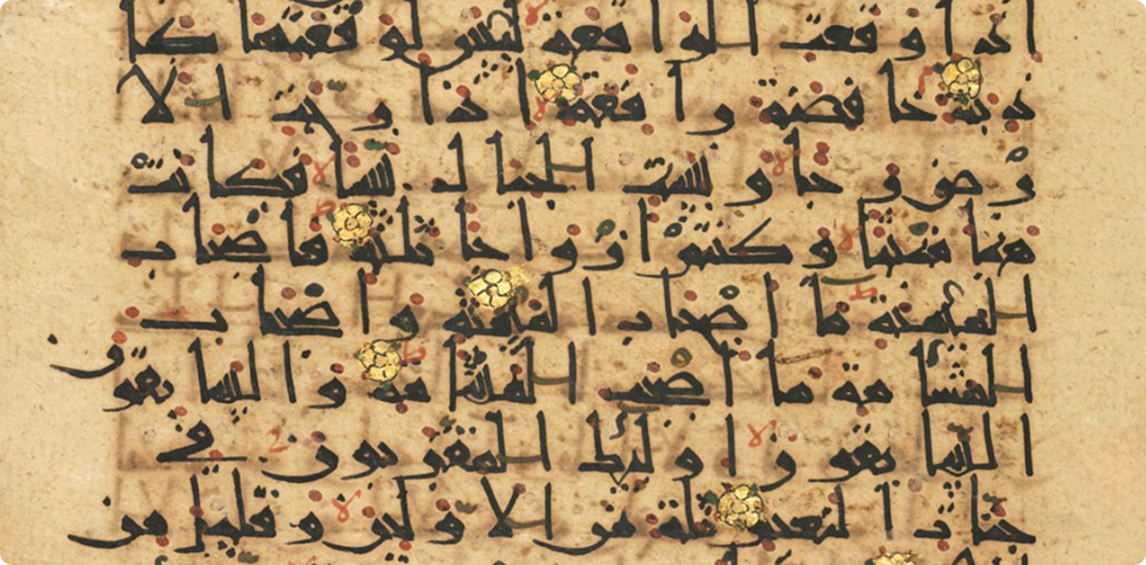 اذا وقعت الواقعة ليس لوقعتها كا
ذبة خافضة رافعة اذا رجت الا
رض رجا وبست الجبال بسا فكانت
هبا منبثا وكنتم ازواجا ثلثة فاصحاب
الميمنة ما اصحاب الميمنة واصحاب
المشامة ما اصحب المشامة والسابقون
السابقون اولئك المقربون في
جنات النعيم ثلة من الاولين وقليل من